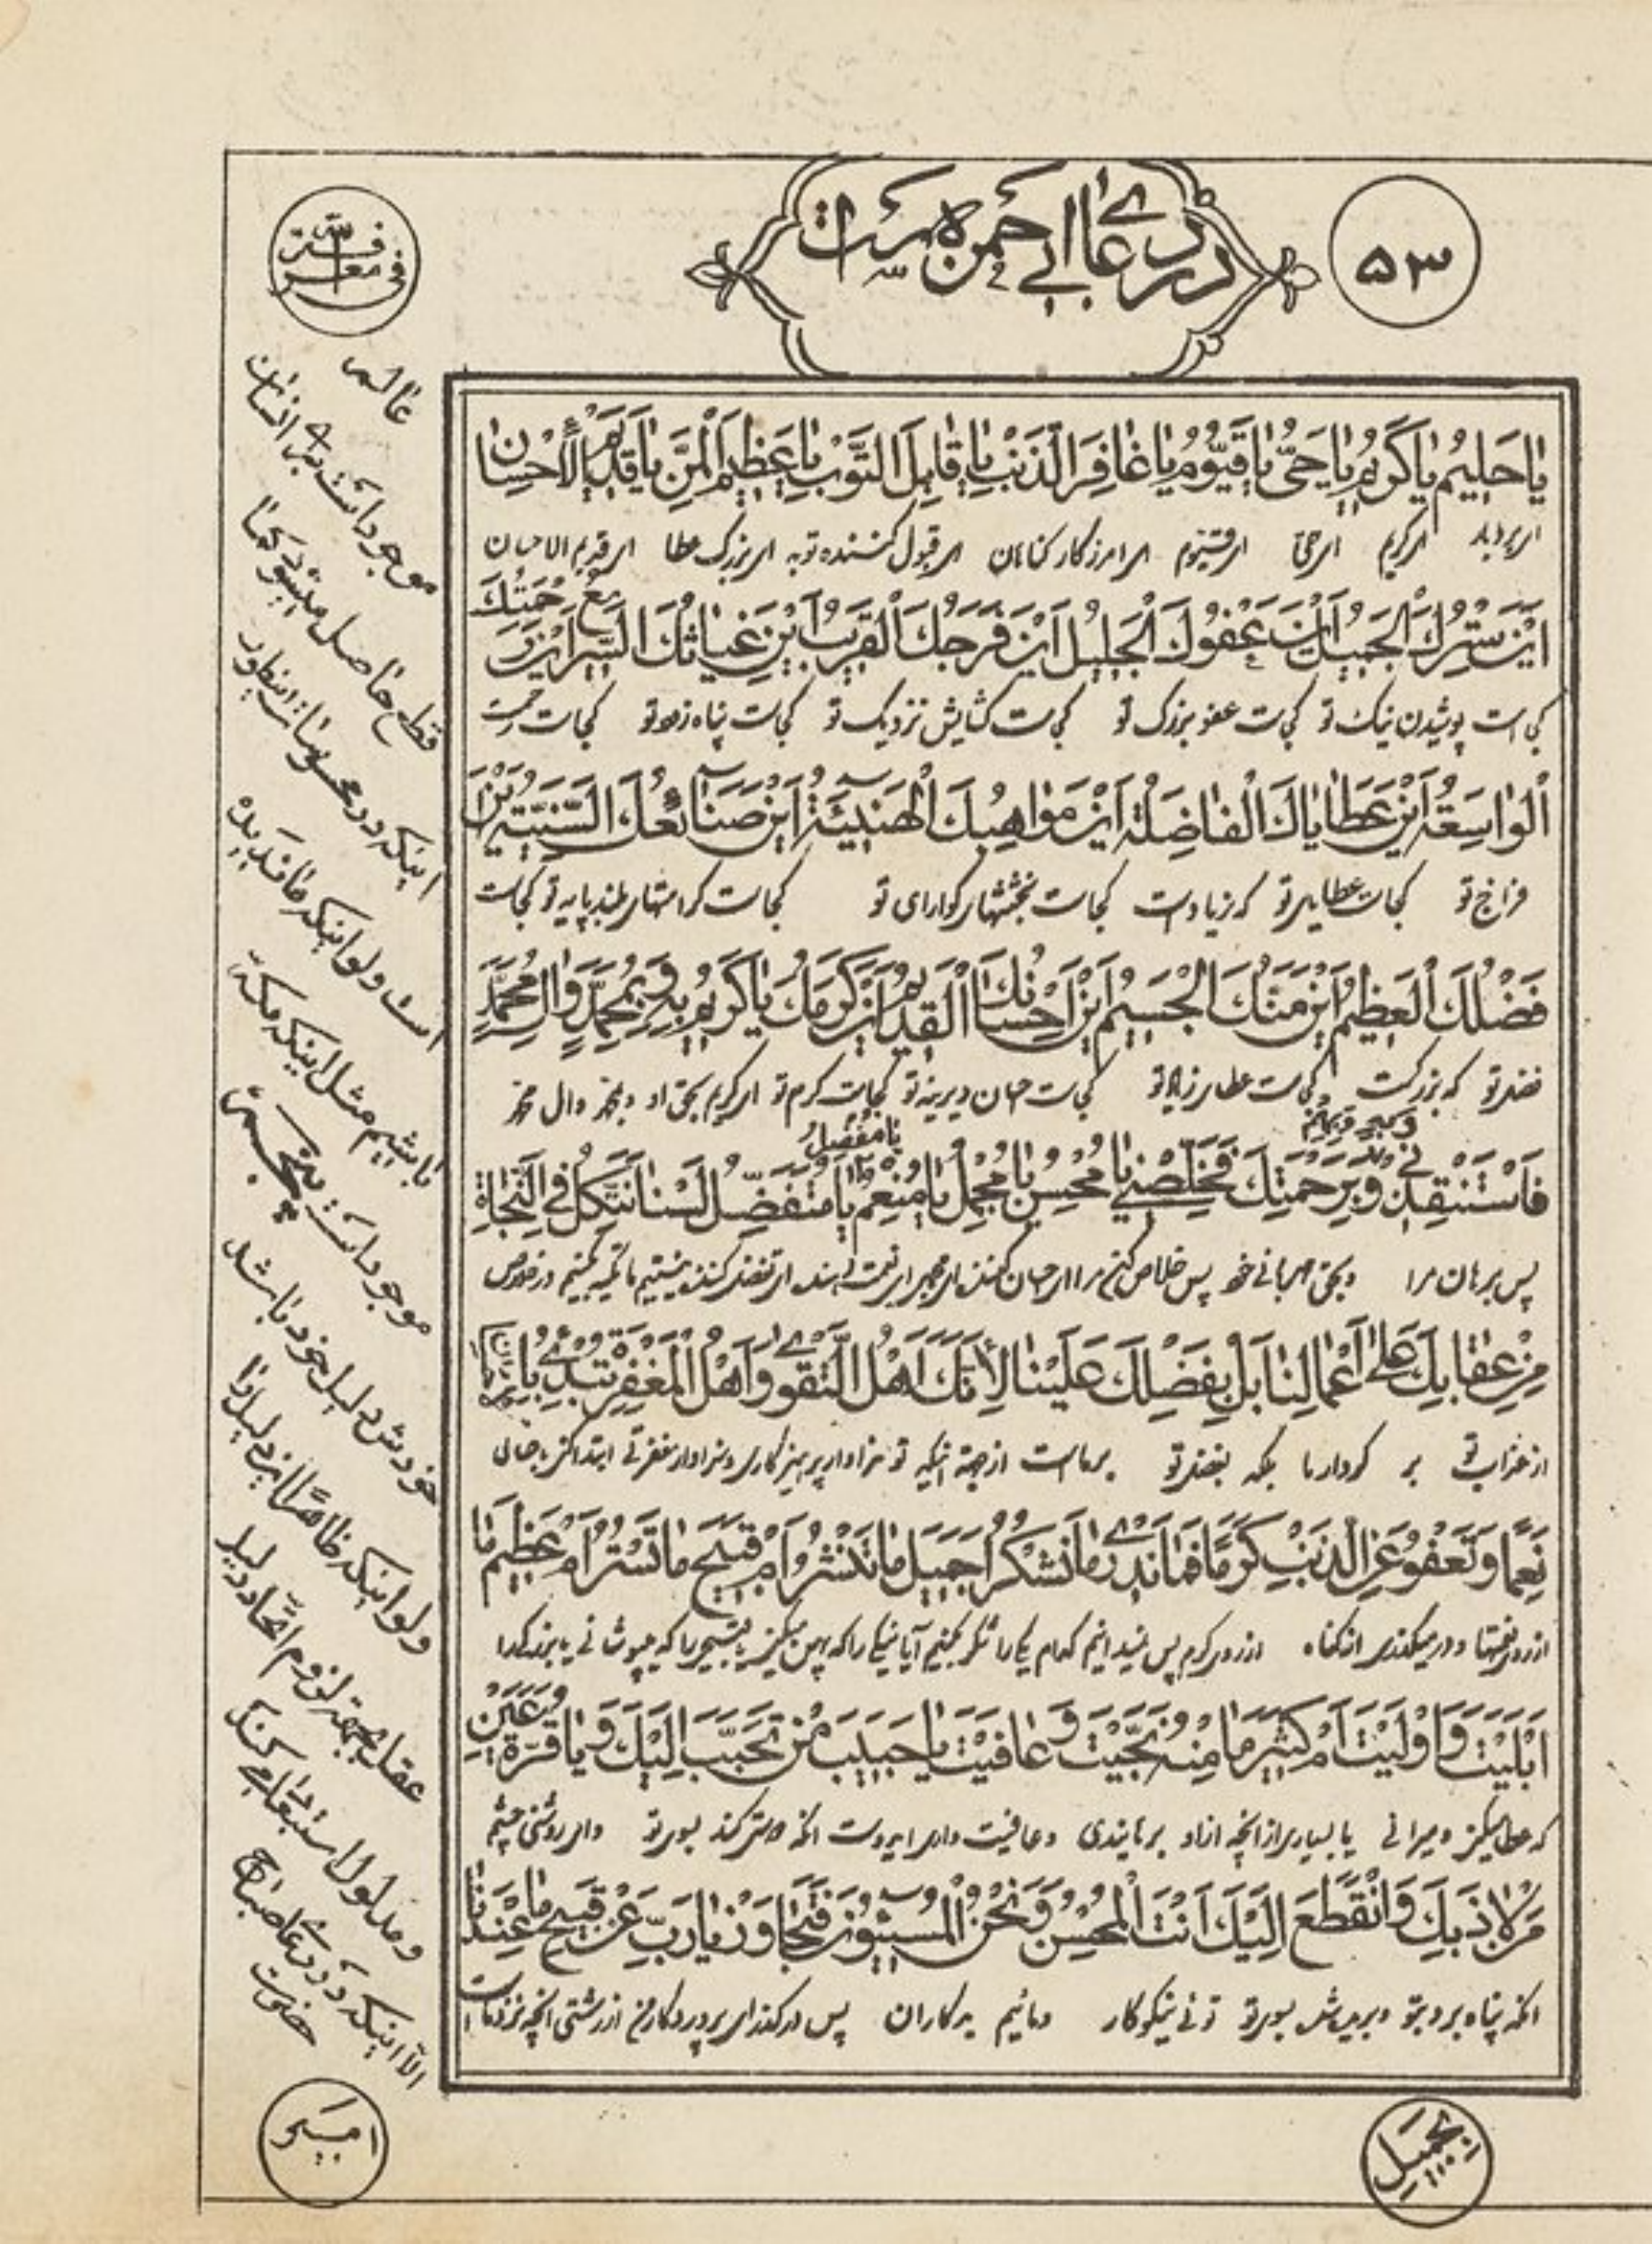 ۵۳
در دعای ابی حمزه است
فی معرفته
یا حَلیمُ یا کَریمُ یا حَیُّ یا قَیّومُ یا غافِرَ الذَنْبِ یا قابِلَ التَّوْبِ یا عَظیمَ الْمَنِّ یا قَدیمَ الْأحْسانِ
ای بردبار ای کریم ای حی ای قیوم ای امرزکار کناهان ای قبول کننده توبه ای بزرک عطا ای قدیم الاحسان
اَیْنَ سَتْرُکَ الْجَمیلُ اَیْنَ عَفْوُکَ الْجَلیلُ اَیْنَ فَرَجُکَ الْقَریبُ اَیْنَ غِیاثُکَ السَّریعُ اَیْنَ رَحْمَتُکَ
کجاست پوشیدن نیک تو کجاست عفو بزرک تو کجاست کشایش نزدیک تو کجاست پناه زود تو کجاست رحمت
الْواسِعَةُ اَیْنَ عَطایاکَ الْفاضِلَةُ اَیْنَ مَواهِبُکَ الْهَنیئَةُ اَیْنَ صَنآئِعُکَ السَّنِیَّةُ اَیْنَ
فراخ تو کجاست عطایای تو که زیاد است کجاست بخششهای کوارای تو کجاست کرامتهای بلند پایه تو کجاست
فَضْلُکَ الْعَظیمُ اَیْنَ مَنُّکَ الْجَسیمُ اَیْنَ اِحْسانُکَ الْقَدیمُ اَیْنَ کَرَمُکَ یا کَریمُ بِهِ وَ بِمُحَمَّدٍ وَ الِ مُحَمَّدٍ
فضل تو که بزرکست کجاست عطای تو کجاست احسان دیرینه تو کجاست کرم تو ای کریم بحق او و محمد و ال محمد
فَاسْتَنْقِذْنی وَ بِرَحْمَتِکَ فَخَلِّصْنی یا مُحْسِنُ یا مُجْمِلُ یا مُنْعِمُ یا مُتَفَضِّلُ لَسْنا نَتَّکِلُ فِی النَّجاةِ
یا مفضل
پس برهان مرا و بحق مهربانی خود پس خلاص کن مرا ای احسان کننده
مِنْ عِقابِکَ عَلی اَعْمالِنا بَلْ بِفَضْلِکَ عَلَیْنا لِأَنَّکَ اَهْلُ التَّقْوی وَ اَهْلُ الْمَغْفِرَةِ تُبْدِئُ بِالْاِحْسانِ
از عذاب تو بر کردار ما بلکه بفضل تو بر ماست از جهة اینکه تو سزاوار پرهیزکاری و سزاوار مغفرتی ابتدا
نِعَمًا وَ تَعْفُو عَنِ الذَنْبِ کَرَمًا فَما نَدْری ما نَشْکُرُ اَجَمیلَ ما تَنْشُرُ اَمْ قَبیحَ ما تَسْتُرُ اَمْ عَظیمَ ما
از روی نعمتها و در میکذری از کناه از روی کرم پس نمیدانیم کدام یکی را شکر بکنیم آیا نیکی را که پهن میکنی
اَبْلَیْتَ وَ اَوْلَیْتَ اَمْ کَثیرَ ما مِنْهُ نَجَّیْتَ وَ عافَیْتَ یا حَبیبَ مَنْ تَحَبَّبَ اِلَیْکَ وَ یا قُرَّةَ عَیْنِ
که عطا میکنی یا بسیاری از انچه از او برهانیدی و عافیت دادی ای دوست انکه دوستی کند بسوی تو و ای روشنی چشم
مَنْ لاذَ بِکَ وَ انْقَطَعَ اِلَیْکَ اَنْتَ الْمُحْسِنُ وَ نَحْنُ الْمُسیٓئُونَ فَتَجاوَزْ یا رَبِّ عَنْ قَبیحِ ما عِنْدَنا
انکه پناه برد بتو و بریده شد بسوی تو توئی نیکوکار و مائیم بدکاران پس درکذر ای پروردکار من از زشتی انچه نزد ماست
عالم
موجود است بر انسان
قطع حاصل میشود
اینکه در محسوسات اینطور
است ولو اینکه ما ندیده
باشیم مثل اینکه مکه
موجود است
خودش دلیل خود باشد
ولو اینکه ظاهرًا این دلیل را
عقل بجهة لزوم اتحاد دلیل
و مدلول استبعاد میکند
الا اینکه در دعای صباح
حضرت
امیر
بجمیل